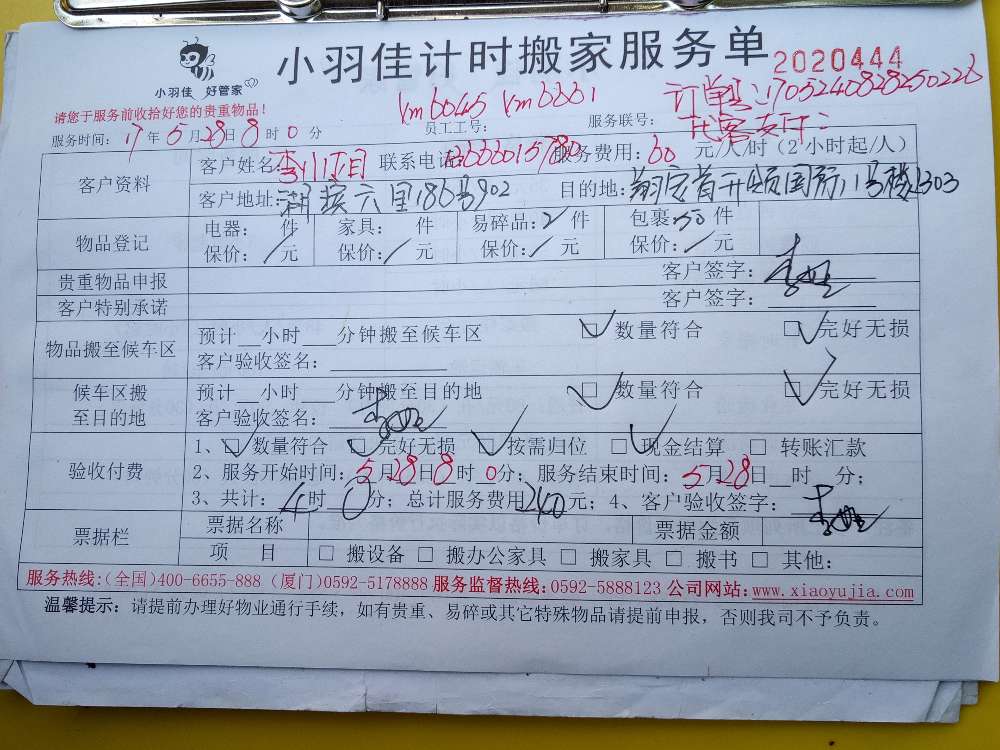 小羽佳 好管家
小羽佳计时搬家服务单
2020444
请您于服务前收拾好您的贵重物品！
xm6045 xm6661
订单号：1705240828250226
服务时间：17年5月28日8时0分 员工工号： 服务联号：
客户资料 客户姓名： 联系电话： 服务费用：60元/人/时（2小时起/人）
客户地址：湖滨六里186号902 目的地：
物品登记 电器： 件 家具： 件 易碎品：2件 包裹：50件
保价：/元 保价：/元 保价：/元 保价：/元
贵重物品申报 客户签字：
客户特别承诺 客户签字：
物品搬至候车区 预计__小时___分钟搬至候车区 ☑数量符合 ☑完好无损
客户验收签名：
候车区搬至目的地 预计__小时___分钟搬至目的地 ☑数量符合 ☑完好无损
客户验收签名：
验收付费 1、☑数量符合 ☑完好无损 ☑按需归位 ☑现金结算 □转账汇款
2、服务开始时间：5月28日8时0分；服务结束时间：5月28日__时__分；
3、共计：4时0分；总计服务费用240元；4、客户验收签字：
票据栏 票据名称 票据金额
项 目 □搬设备 □搬办公家具 □搬家具 □搬书 □其他：
服务热线：（全国）400-6655-888（厦门）0592-5178888 服务监督热线：0592-5888123 公司网站：www.xiaoyujia.com
温馨提示：请提前办理好物业通行手续，如有贵重、易碎或其它特殊物品请提前申报，否则我司不予负责。